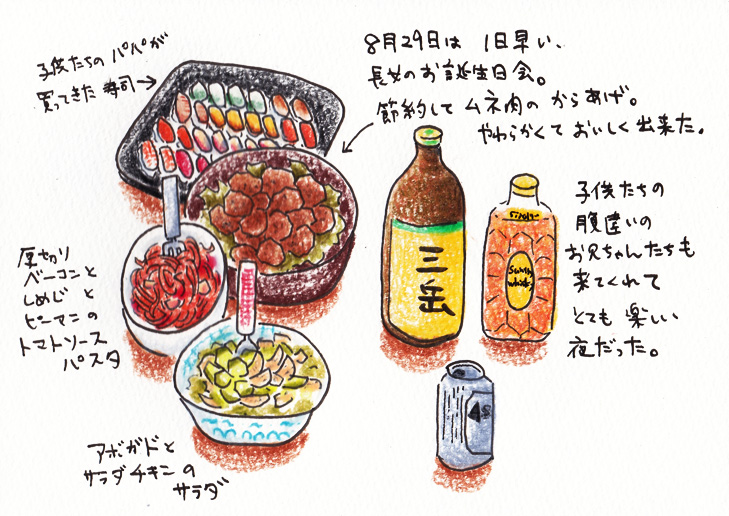 子供たちの パパが
買ってきた 寿司→
8月29日は 1日早い、
長女のお誕生日会。
節約して ムネ肉の からあげ。
やわらかくて おいしく出来た。
三岳
子供たちの
腹違いの
お兄ちゃんたちも
来てくれて
とても 楽しい
夜だった。
厚切り
ベーコンと
しめじと
ピーマンの
トマトソース
パスタ
アボガドと
サラダチキンの
サラダ